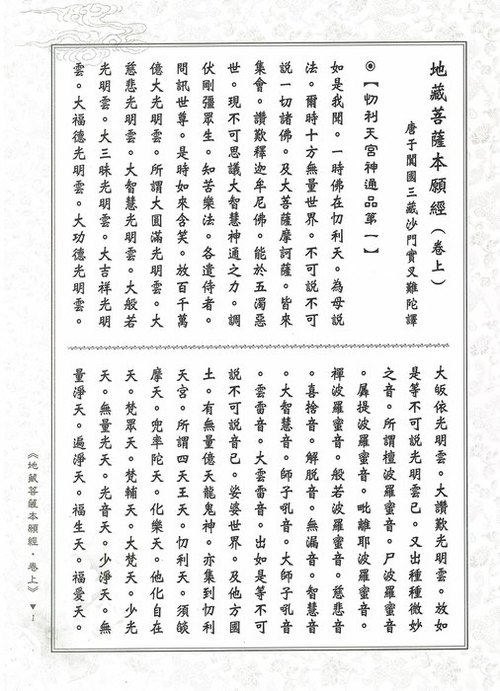 地藏菩薩本願經（卷上）
唐于闐國三藏沙門實叉難陀譯
◎【忉利天宮神通品第一】
如是我聞。一時佛在忉利天。為母說
法。爾時十方無量世界。不可說不可
說一切諸佛。及大菩薩摩訶薩。皆來
集會。讚歎釋迦牟尼佛。能於五濁惡
世。現不可思議大智慧神通之力。調
伏剛彊眾生。知苦樂法。各遣侍者。
問訊世尊。是時如來含笑。放百千萬
億大光明雲。所謂大圓滿光明雲。大
慈悲光明雲。大智慧光明雲。大般若
光明雲。大三昧光明雲。大吉祥光明
雲。大福德光明雲。大功德光明雲。
大皈依光明雲。大讚歎光明雲。放如
是等不可說光明雲已。又出種種微妙
之音。所謂檀波羅蜜音。尸波羅蜜音
。羼提波羅蜜音。毗離耶波羅蜜音。
禪波羅蜜音。般若波羅蜜音。慈悲音
。喜捨音。解脫音。無漏音。智慧音
。大智慧音。師子吼音。大師子吼音
。雲雷音。大雲雷音。出如是等不可
說不可說音已。娑婆世界。及他方國
土。有無量億天龍鬼神。亦集到忉利
天宮。所謂四天王天。忉利天。須燄
摩天。兜率陀天。化樂天。他化自在
天。梵眾天。梵輔天。大梵天。少光
天。無量光天。光音天。少淨天。無
量淨天。遍淨天。福生天。福愛天。
《地藏菩薩本願經．卷上》▼1